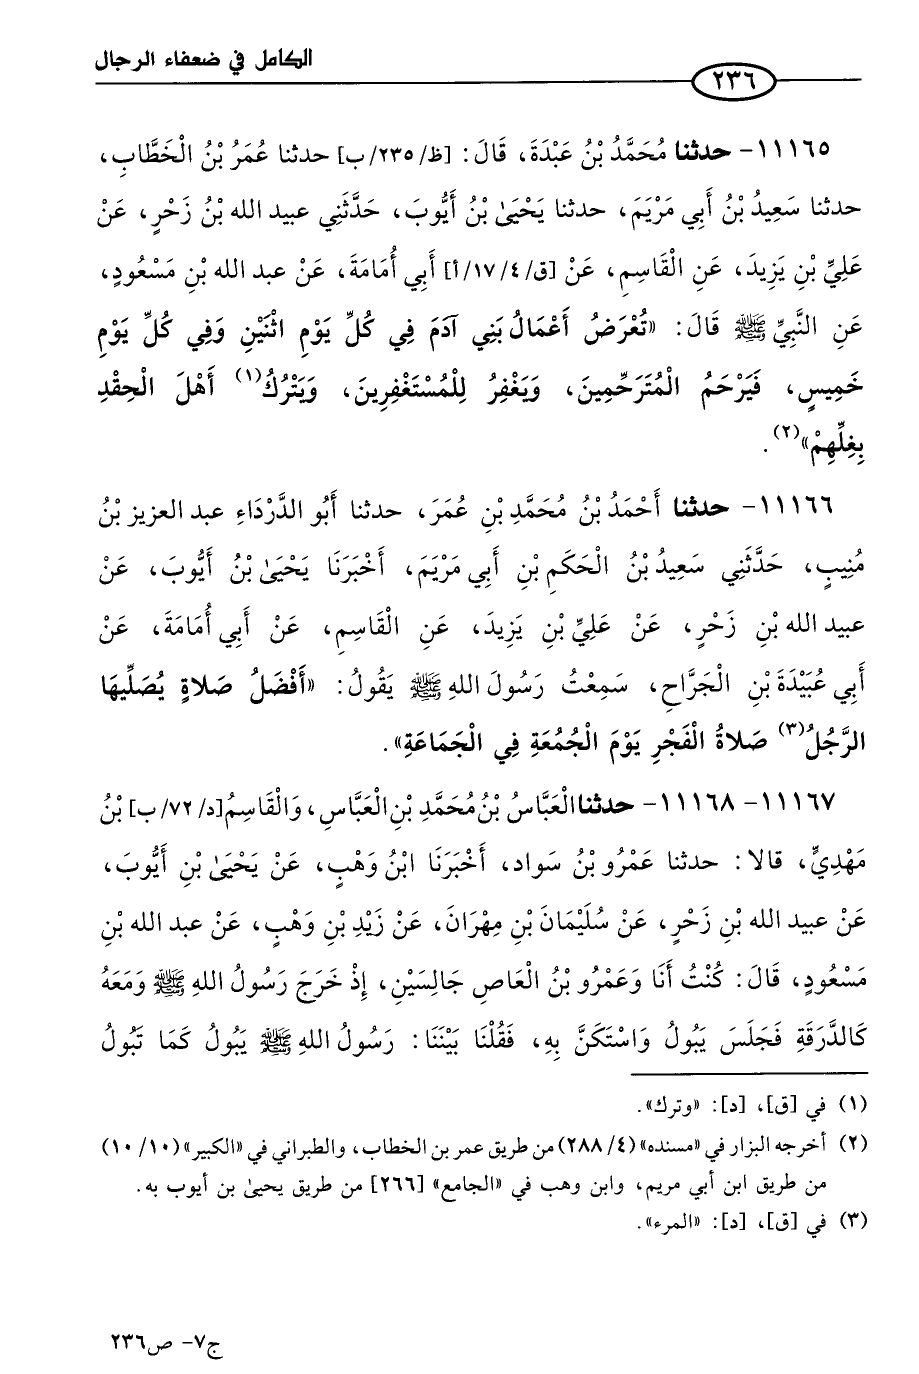 الكامل في ضعفاء الرجال
٢٣٦
١١١٦٥- حدثنا مُحَمَّدُ بْنُ عَبْدَةَ، قَالَ: [ظ/٢٣٥/ب] حدثنا عُمَرُ بْنُ الْخَطَّابِ،
حدثنا سَعِيدُ بْنُ أَبِي مَرْيَمَ، حدثنا يَحْيَىٰ بْنُ أَيُّوبَ، حَدَّثَنِي عبيد الله بْنُ زَحْرٍ، عَنْ
عَلِيِّ بْنِ يَزِيدَ، عَنِ الْقَاسِمِ، عَنْ [ق/٤/١٧/أ] أَبِي أُمَامَةَ، عَنْ عبد الله بْنِ مَسْعُودٍ،
عَنِ النَّبِيِّ ﷺ قَالَ: «تُعْرَضُ أَعْمَالُ بَنِي آدَمَ فِي كُلِّ يَوْمِ اثْنَيْنِ وَفِي كُلِّ يَوْمِ
خَمِيسٍ، فَيَرْحَمُ الْمُتَرَحِّمِينَ، وَيَغْفِرُ لِلْمُسْتَغْفِرِينَ، وَيَتْرُكُ(١) أَهْلَ الْحِقْدِ
بِغِلِّهِمْ»(٢).
١١١٦٦- حدثنا أَحْمَدُ بْنُ مُحَمَّدِ بْنِ عُمَرَ، حدثنا أَبُو الدَّرْدَاءِ عبد العزيز بْنُ
مُنِيبٍ، حَدَّثَنِي سَعِيدُ بْنُ الْحَكَمِ بْنِ أَبِي مَرْيَمَ، أَخْبَرَنَا يَحْيَىٰ بْنُ أَيُّوبَ، عَنْ
عبيد الله بْنِ زَحْرٍ، عَنْ عَلِيِّ بْنِ يَزِيدَ، عَنِ الْقَاسِمِ، عَنْ أَبِي أُمَامَةَ، عَنْ
أَبِي عُبَيْدَةَ بْنِ الْجَرَّاحِ، سَمِعْتُ رَسُولَ اللهِ ﷺ يَقُولُ: «أَفْضَلُ صَلاةٍ يُصَلِّيهَا
الرَّجُلُ(٣) صَلاةُ الْفَجْرِ يَوْمَ الْجُمُعَةِ فِي الْجَمَاعَةِ».
١١١٦٧- ١١١٦٨- حدثنا الْعَبَّاسُ بْنُ مُحَمَّدِ بْنِ الْعَبَّاسِ، وَالْقَاسِمُ[د/٧٢/ب] بْنُ
مَهْدِيٍّ، قالا: حدثنا عَمْرُو بْنُ سواد، أَخْبَرَنَا ابْنُ وَهْبٍ، عَنْ يَحْيَىٰ بْنِ أَيُّوبَ،
عَنْ عبيد الله بْنِ زَحْرٍ، عَنْ سُلَيْمَانَ بْنِ مِهْرَانَ، عَنْ زَيْدِ بْنِ وَهْبٍ، عَنْ عبد الله بْنِ
مَسْعُودٍ، قَالَ: كُنْتُ أَنَا وَعَمْرُو بْنُ الْعَاصِ جَالِسَيْنِ، إِذْ خَرَجَ رَسُولُ اللهِ ﷺ وَمَعَهُ
كَالدَّرَقَةِ فَجَلَسَ يَبُولُ وَاسْتَكَنَّ بِهِ، فَقُلْنَا بَيْنَنَا: رَسُولُ اللهِ ﷺ يَبُولُ كَمَا تَبُولُ
(١) في [ق]، [د]: «وترك».
(٢) أخرجه البزار في «مسنده» (٤/ ٢٨٨) من طريق عمر بن الخطاب، والطبراني في «الكبير» (١٠/ ١٠)
من طريق ابن أبي مريم، وابن وهب في «الجامع» [٢٦٦] من طريق يحيىٰ بن أيوب به.
(٣) في [ق]، [د]: «المرء».
ج٧- ص٢٣٦